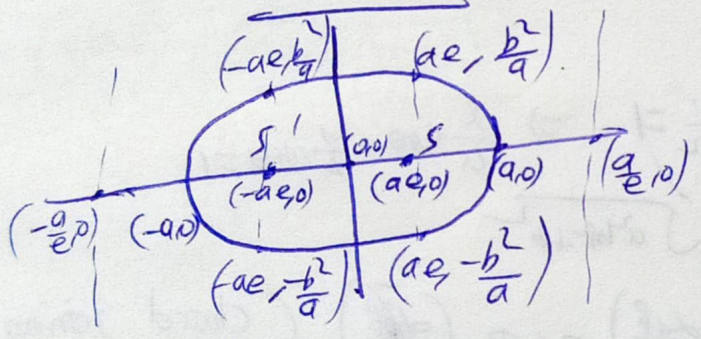 (-ae, b²/a) (ae, b²/a).
S' (0,0) S
(-a/e, 0) (-a,0) (-ae,0) (ae,0) (a,0) (a/e, 0)
(-ae, -b²/a) (ae, -b²/a)